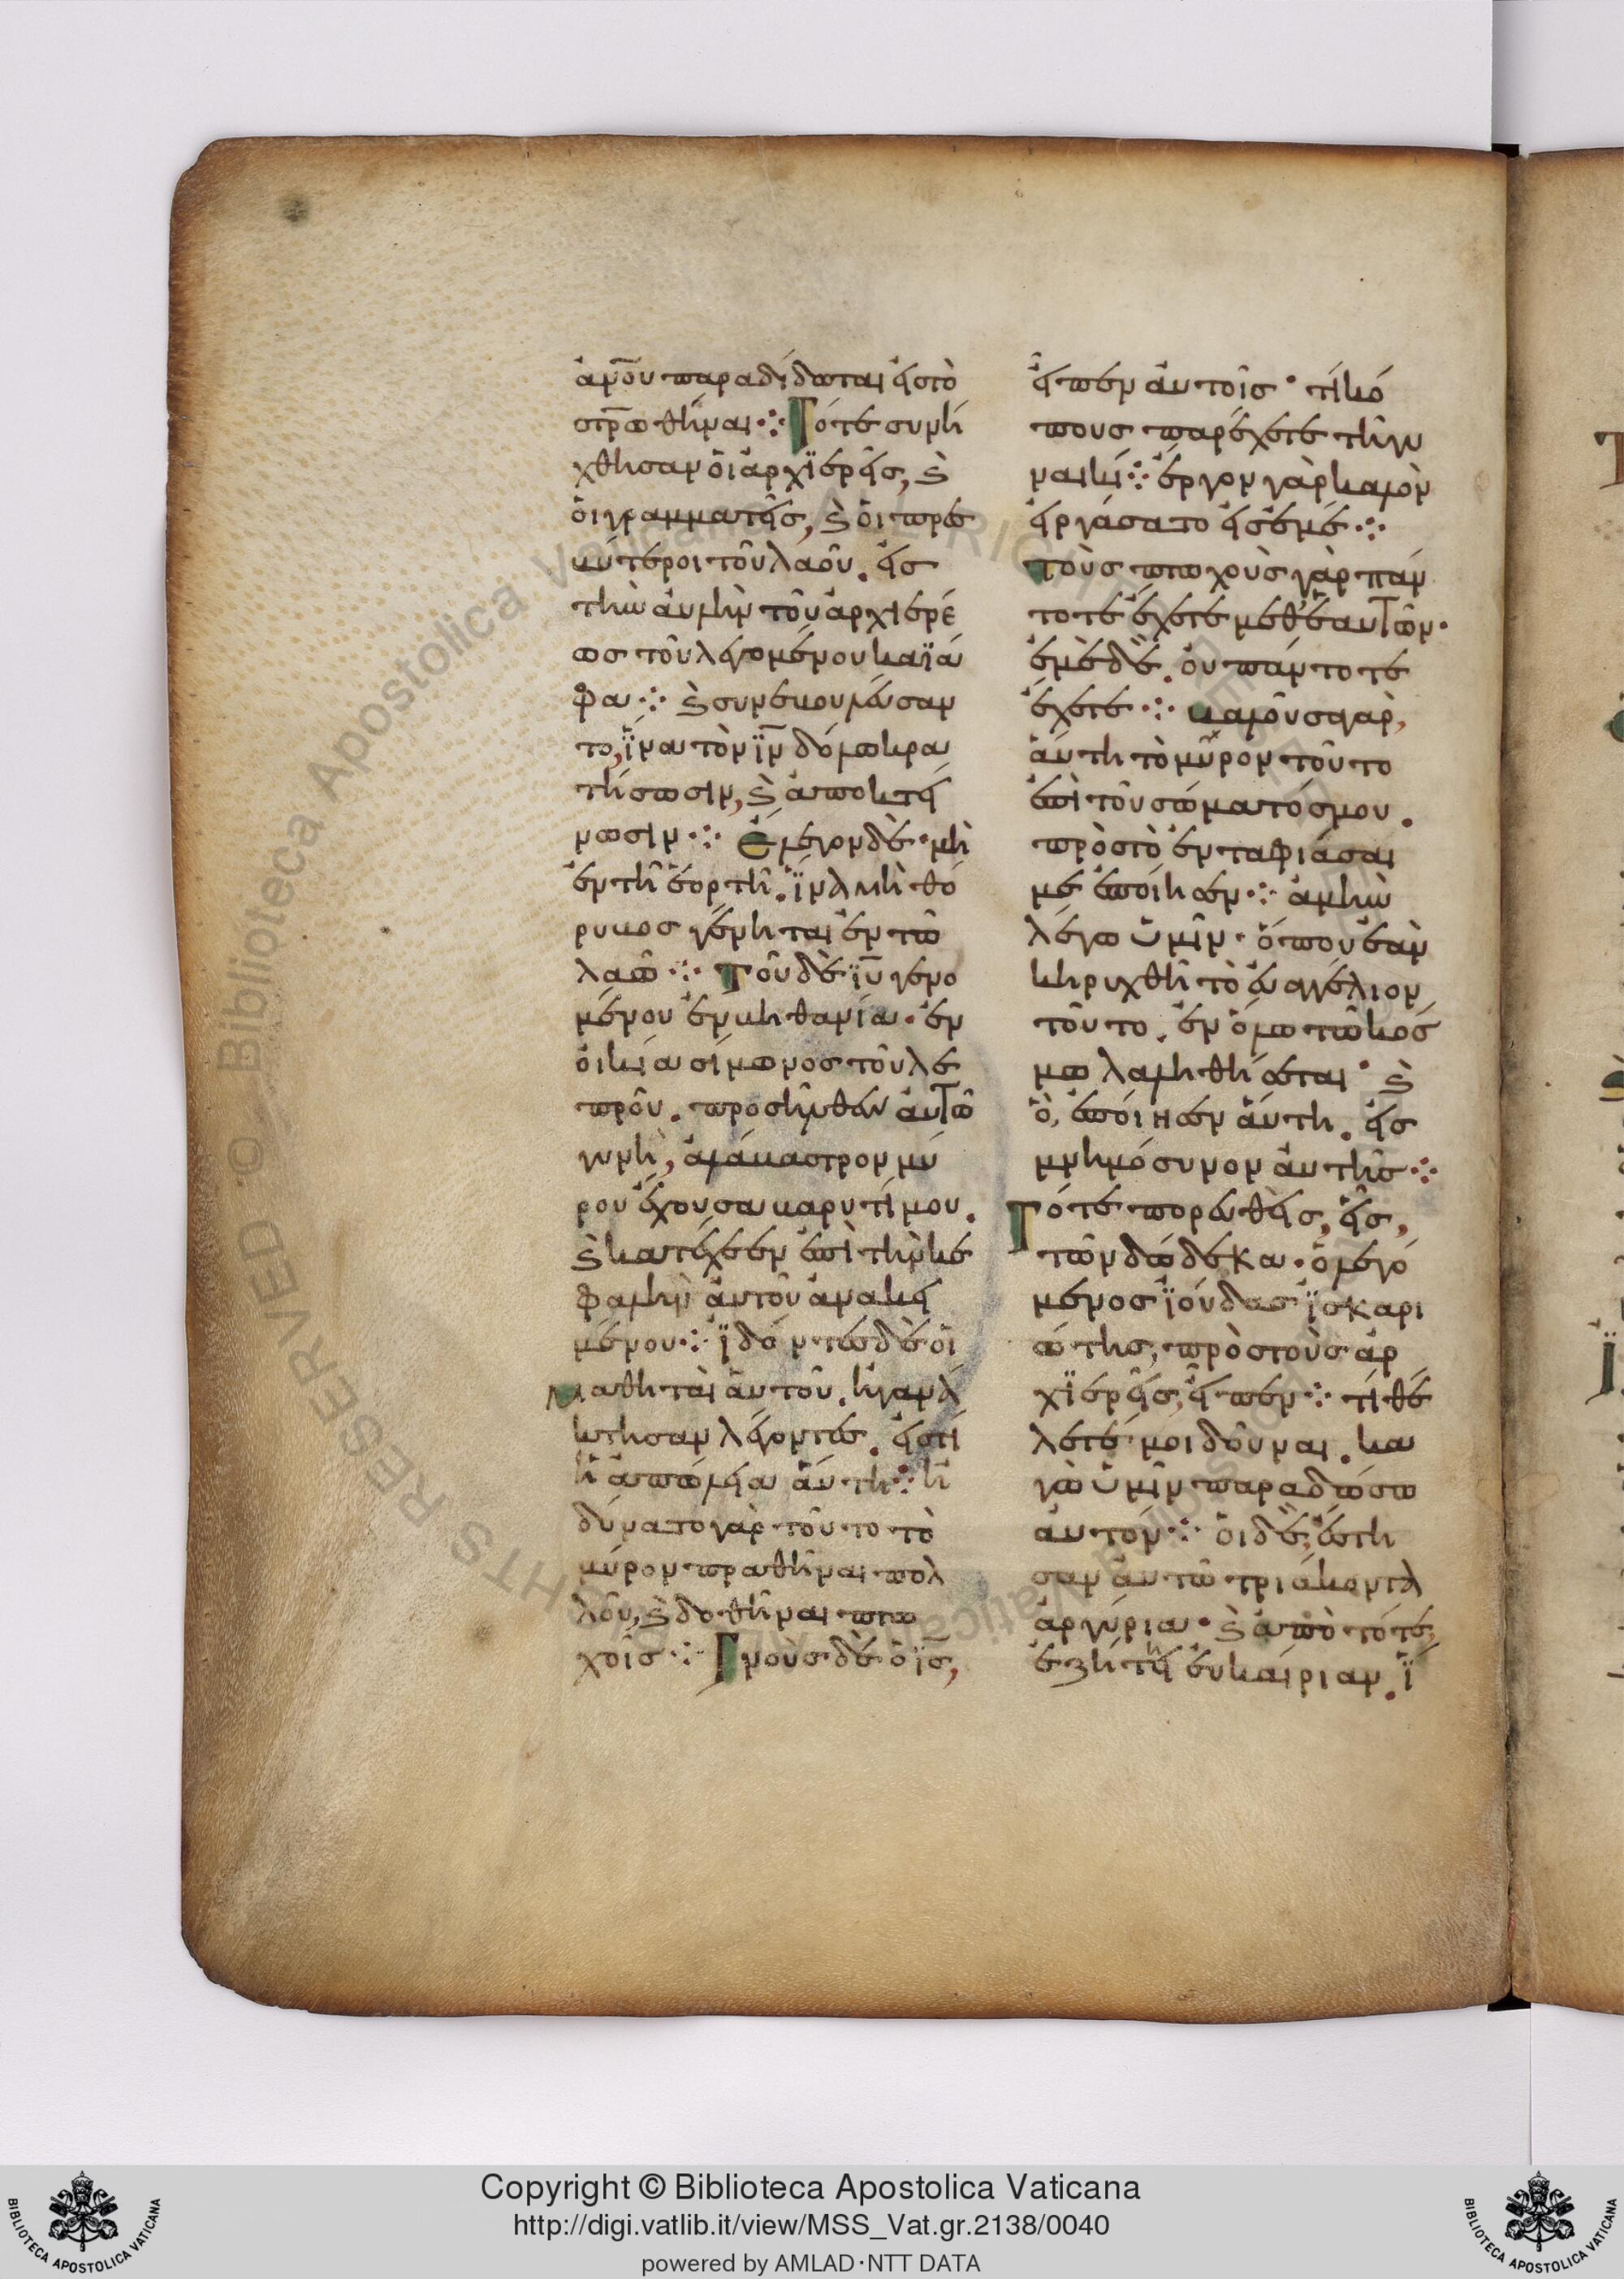 ἀν̅ου παραδίδωται ἐις τὸ
στ̅ρωθῆναι⁘ Τότε συνή
χθησαν ὁι ἀρχϊερεῖς, ϗ
ὁι γραμματεῖς, ϗ ὁι πρεσ
βύτεροι τοῦ λαοῦ. εἰς
τὴν ἀυλὴν τοῦ ἀρχιερέ
ως τοῦ λεγομένου καϊά
φα⁘ ϗ συνεβουλέυσαν
το, ἵνα τὸν ἰ̅ν δόλω κρα
τήσωσιν, ϗ ἀποκτεί
νωσιν⁘ ἔλεγον δὲ· μὴ
ἐν τῆ ἑορτῆ. ἵνα μὴ θό
ρυβος γένηται ἐν τῶ
λαῶ⁘ Τοῦ δὲ ἰ̅υ γενο
μένου ἐν βηθανία· ἐν
ὀικία σίμωνος τοῦ λε
προῦ. προσῆλθεν ἀυτῶ
γυνὴ, ἀλάβαστρον μύ
ρου ἔχουσα βαρυτίμου.
ϗ κατέχεεν ἐπὶ τὴν κε
φαλὴν ἀυτοῦ ἀνακει
μένου⁘ ἰδόντες δὲ ὁι
μαθηταὶ ἀυτοῦ. ἠγανά
κτησαν λέγοντες. ἐις τί
ἡ ἀπώλεια ἄυτη⁘ ἠ
δύνατο γὰρ τοῦτο τὸ
μύρον πραθῆναι πολ
λοῦ, ϗ δοθῆναι πτω
χοῖς⁘ Γνοὺς δὲ ὁ ἰ̅ς,
ἐίπεν ἀυτοῖς· τί κό
πους παρέχετε τῆ γυ
ναικί⁘ ἔργον γὰρ καλὸν
ἐιργάσατο ἐις ἐμέ⁘
τοὺς πτωχοὺς γὰρ πάν
τοτε ἔχετε μεθ' ἑαυτῶν·
ἐμὲ δὲ. ὀυ πάντοτε
ἔχετε⁘ βαλοῦσα γὰρ,
ἄυτη τὸ μύρον τοῦτο
ἐπὶ τοῦ σώματός μου.
πρὸς τὸ ἐνταφιάσαι
με ἐποίησεν⁘ ἀμὴν
λέγω ὑμῖν· ὅπου ἐὰν
κηρυχθῆ τὸ ἐυαγγέλιον
τοῦτο. ἐν ὅλω τῶ κόσ
μω λαληθήσεται· ϗ
ὃ, ἐποίησεν ἄυτη. ἐις
μνημόσυνον ἀυτῆς⁘
Τότε πορευθεὶς, ἐῖς,
τῶν δώδεκα· ὁ λεγό
μενος ϊούδας ϊσκαρι
ώτης, πρὸς τοὺς ἀρ
χϊερεῖς, ἐίπεν⁘ τί θέ
λετέ μοι δοῦναι. κα
γὼ ὑμῖν παραδώσω
ἀυτόν⁘ ὁι δὲ, ἔστη
σαν ἀυτῶ τριάκοντα
ἀργύρια· ϗ ἀπὸ τότε,
ἐζήτει ἐυκαιρίαν. ἵ
Copyright © Biblioteca Apostolica Vaticana
http://digi.vatlib.it/view/MSS_Vat.gr.2138/0040
powered by AMLAD·NTT DATA